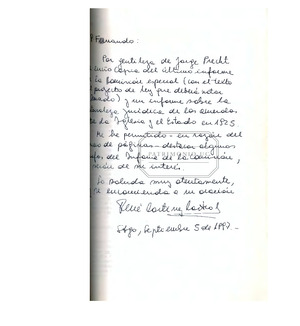 Fernando:
Por gentileza de Jorge Precht
copia del último informe
la Comisión especial (con el texto
proyecto de ley que deberá votar
) y un informe sobre la
jurídica de los acuerdos
la Iglesia y el Estado en 1925
He permitido - en razón del
de páginas - destacar algunos
del informe de la Comisión,
de mi interés.
Le saluda muy atentamente,
se encomienda a su oración
René
Stgo, Septiembre 5 de 1997.-